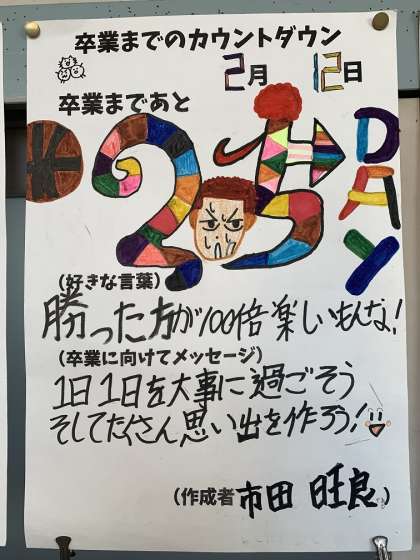 卒業までのカウントダウン
2月 12日
卒業まであと
25 DAY
(好きな言葉)
勝った方が100倍楽しいもんな!
(卒業に向けてメッセージ)
1日1日を大事に過ごそう
そしてたくさん思い出を作ろう!
(作成者 市田 旺良)